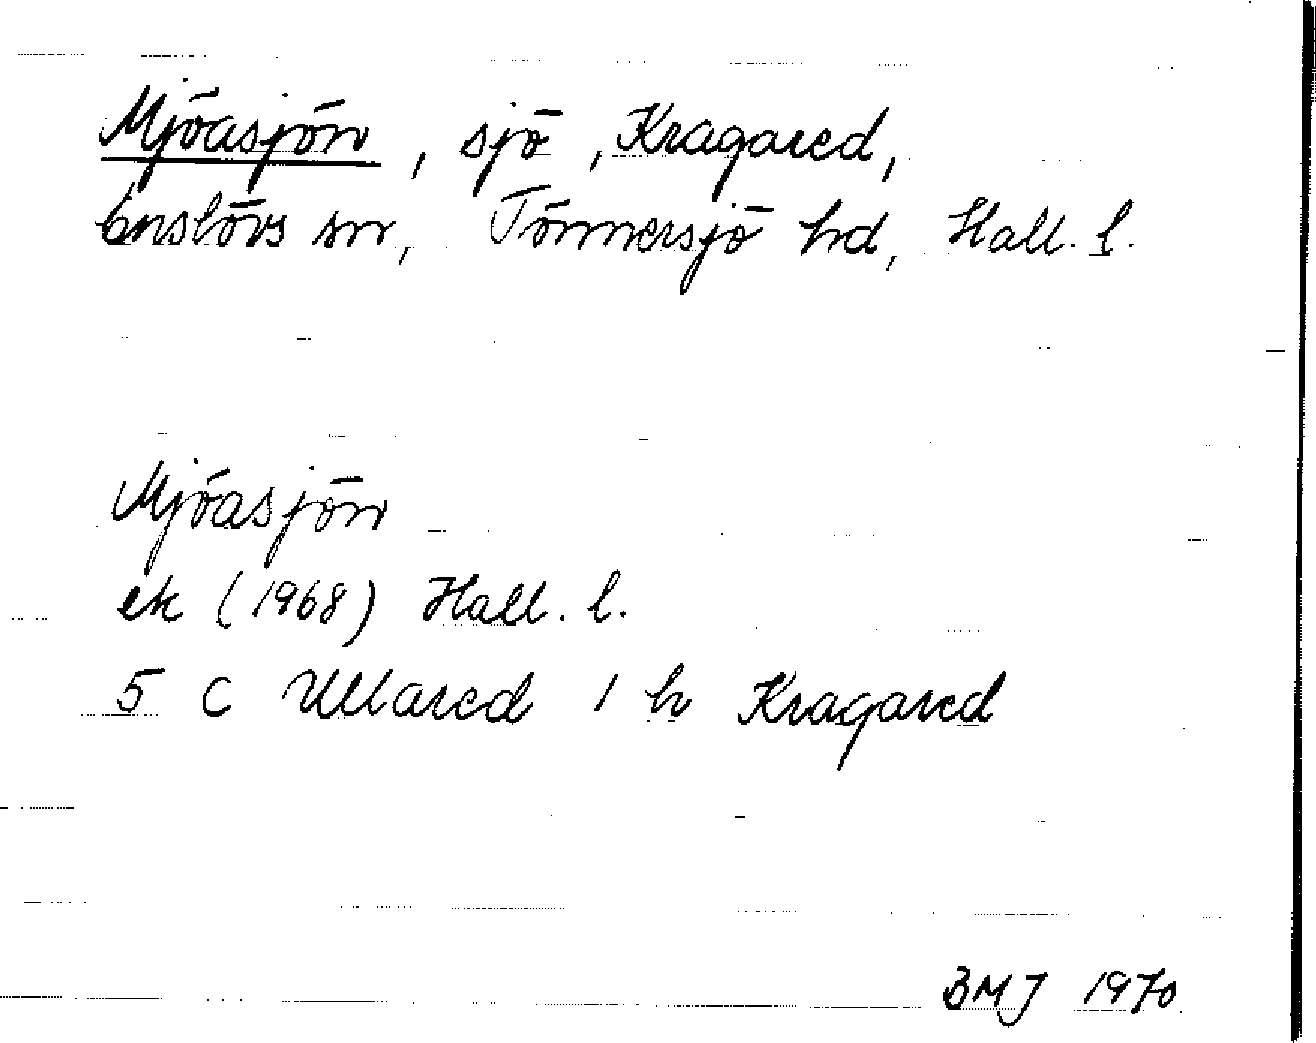 Mjöasjön, sjö, Kragared,
Enslövs sn, Tönnersjö hd, Hall. l.
Mjöasjön
ek (1968) Hall. l.
5 C Ullared 1 h Kragared
BMJ 1970